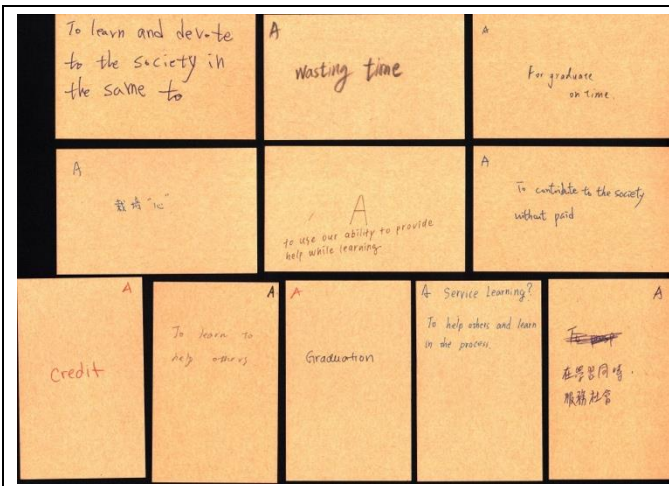 To learn and devote
to the society in
the same to
A
wasting time
A
For graduate
on time.
A
栽培"心"
A
to use our ability to provide
help while learning
A
To contribute to the society
without paid
A
credit
A
To learn to
help others
A
Graduation
A Service Learning?
To help others and learn
in the process.
A
在學習同時,
服務社會